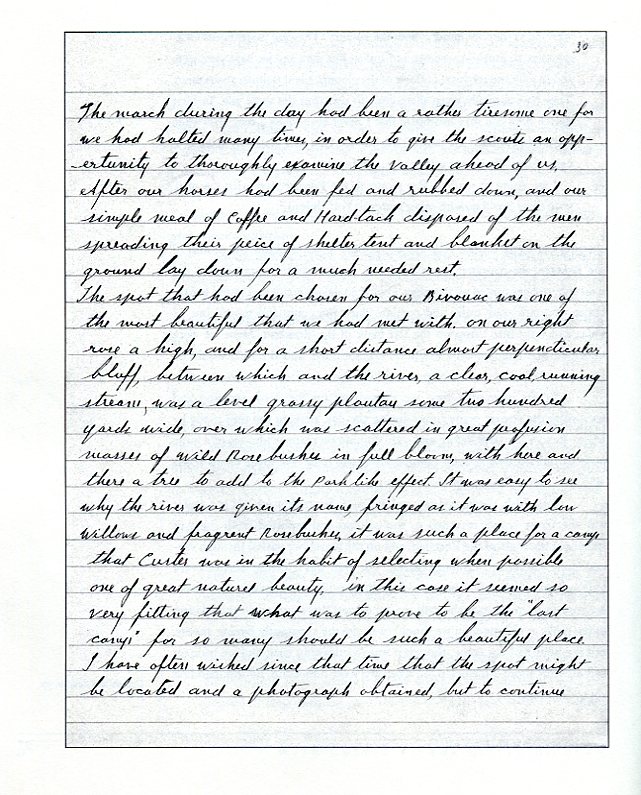 30
The march during the day had been a rather tiresome one for
we had halted many times, in order to give the scouts an opp-
-ertunity to thoroughly examine the valley ahead of us.
After our horses had been fed and rubbed down, and our
simple meal of Coffee and Hard-tack disposed of the men
spreading their peice of shelter tent and blanket on the
ground lay down for a much needed rest.
The spot that had been chosen for our Bivouac was one of
the most beautiful that we had met with. on our right
rose a high, and for a short distance almost perpendicular
bluff, between which and the river, a clear, cool, running
stream, was a level grassy plautau some two hundred
yards wide, over which was scattered in great profusion
masses of wild Rosebushes in full bloom, with here and
there a tree to add to the Parklike effect It was easy to see
why the river was given its name, fringed as it was with low
willows and fragrent Rosebushes, it was such a place for a camp
that Custer was in the habit of selecting when possible
one of great natural beauty, in this case it seemed so
very fitting that what was to prove to be the "last
camp" for so many should be such a beautiful place.
I have often wished since that time that the spot might
be located and a photograph obtained, but to continue